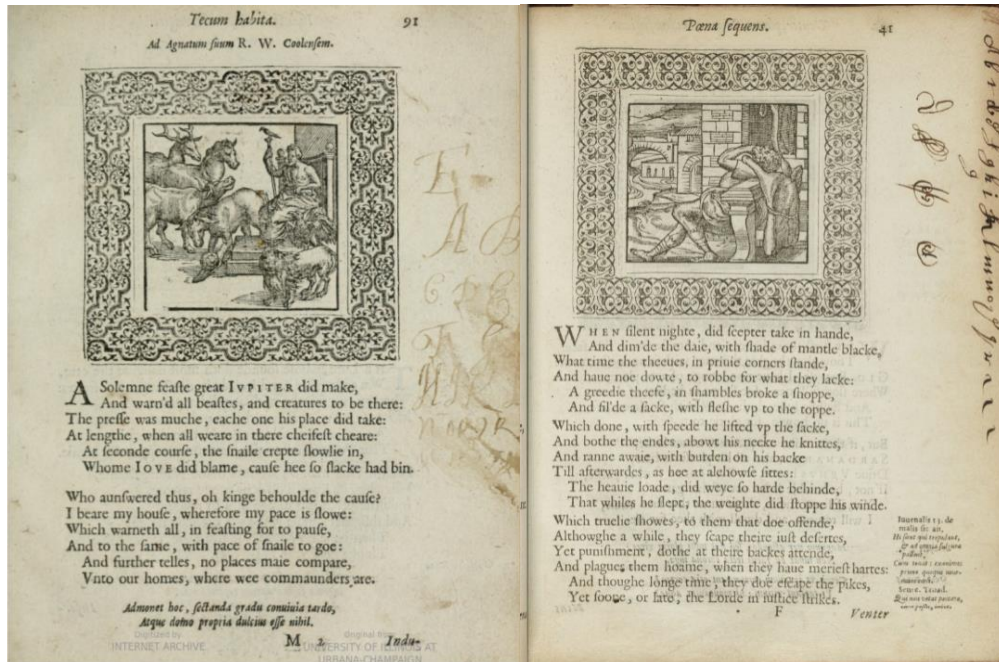 Tecum habita.
91
Ad Agnatum suum R. W. Coolensem.
A Solemne feaste great IVPITER did make,
And warn'd all beastes, and creatures to be there:
The presse was muche, eache one his place did take:
At lengthe, when all weare in there cheifest cheare:
At seconde course, the snaile crepte slowlie in,
Whome IOVE did blame, cause hee so slacke had bin.
Who aunswered thus, oh kinge behoulde the cause?
I beare my house, wherefore my pace is slowe:
Which warneth all, in feasting for to pause,
And to the same, with pace of snaile to goe:
And further telles, no places maie compare,
Vnto our homes, where wee commaunders are.
Admonet hoc, sectanda gradu conuiuia tardo,
Atque domo propria dulcius esse nihil.
M 2 Indu-
Digitized by
INTERNET ARCHIVE
Original from
UNIVERSITY OF ILLINOIS AT
URBANA-CHAMPAIGN
Pœna sequens.
41
WHEN silent nighte, did scepter take in hande,
And dim'de the daie, with shade of mantle blacke,
What time the theeues, in priuie corners stande,
And haue noe dowte, to robbe for what they lacke:
A greedie theefe, in shambles broke a shoppe,
And fil'de a sacke, with fleshe vp to the toppe.
Which done, with speede he lifted vp the sacke,
And bothe the endes, abowt his necke he knittes,
And ranne awaie, with burden on his backe
Till afterwardes, as hee at alehowse sittes:
The heauie loade, did weye so harde behinde,
That whiles he slept, the weighte did stoppe his winde.
Which truelie showes, to them that doe offende,
Althowghe a while, they scape theire iust desertes,
Yet punishment, dothe at theire backes attende,
And plagues them hoame, when they haue meriest hartes:
And thoughe longe time, they doe escape the pikes,
Yet soone, or late, the Lorde in iustice strikes.
Iuuenalis 13. de
malis sic ait.
Hi sunt qui trepidant,
& ad omnia fulgura
pallent,
Cum tonat: exanimes
primo quoque mur-
mure cœli.
Senec. Troad.
F
Venter